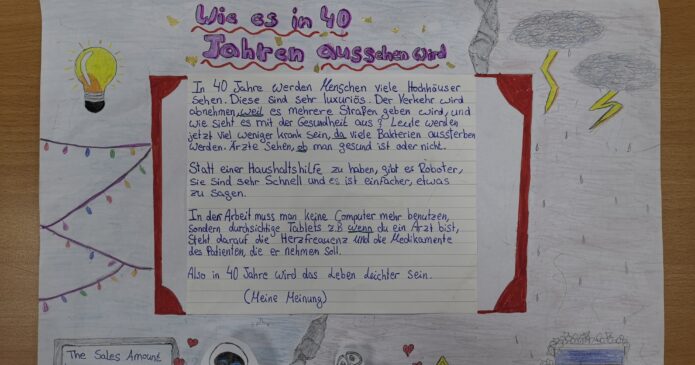 Wie es in 40
Jahren aussehen wird
In 40 Jahre werden Menschen viele Hochhäuser
sehen. Diese sind sehr luxuriös. Der Verkehr wird
abnehmen, weil es mehrere Straßen geben wird, und
wie sieht es mit der Gesundheit aus? Leute werden
jetzt viel weniger krank sein, da viele Bakterien aussterben
werden. Ärzte sehen, ob man gesund ist oder nicht.
Statt einer Haushaltshilfe zu haben, gibt es Roboter,
sie sind sehr schnell und es ist einfacher, etwas
zu sagen.
In der Arbeit muss man keine Computer mehr benutzen,
sondern durchsichtige Tablets z.B wenn du ein Arzt bist,
steht darauf die Herzfrequenz und die Medikamente
des Patienten, die er nehmen soll.
Also in 40 Jahre wird das Leben leichter sein.
(Meine Meinung)
The Sales Amount